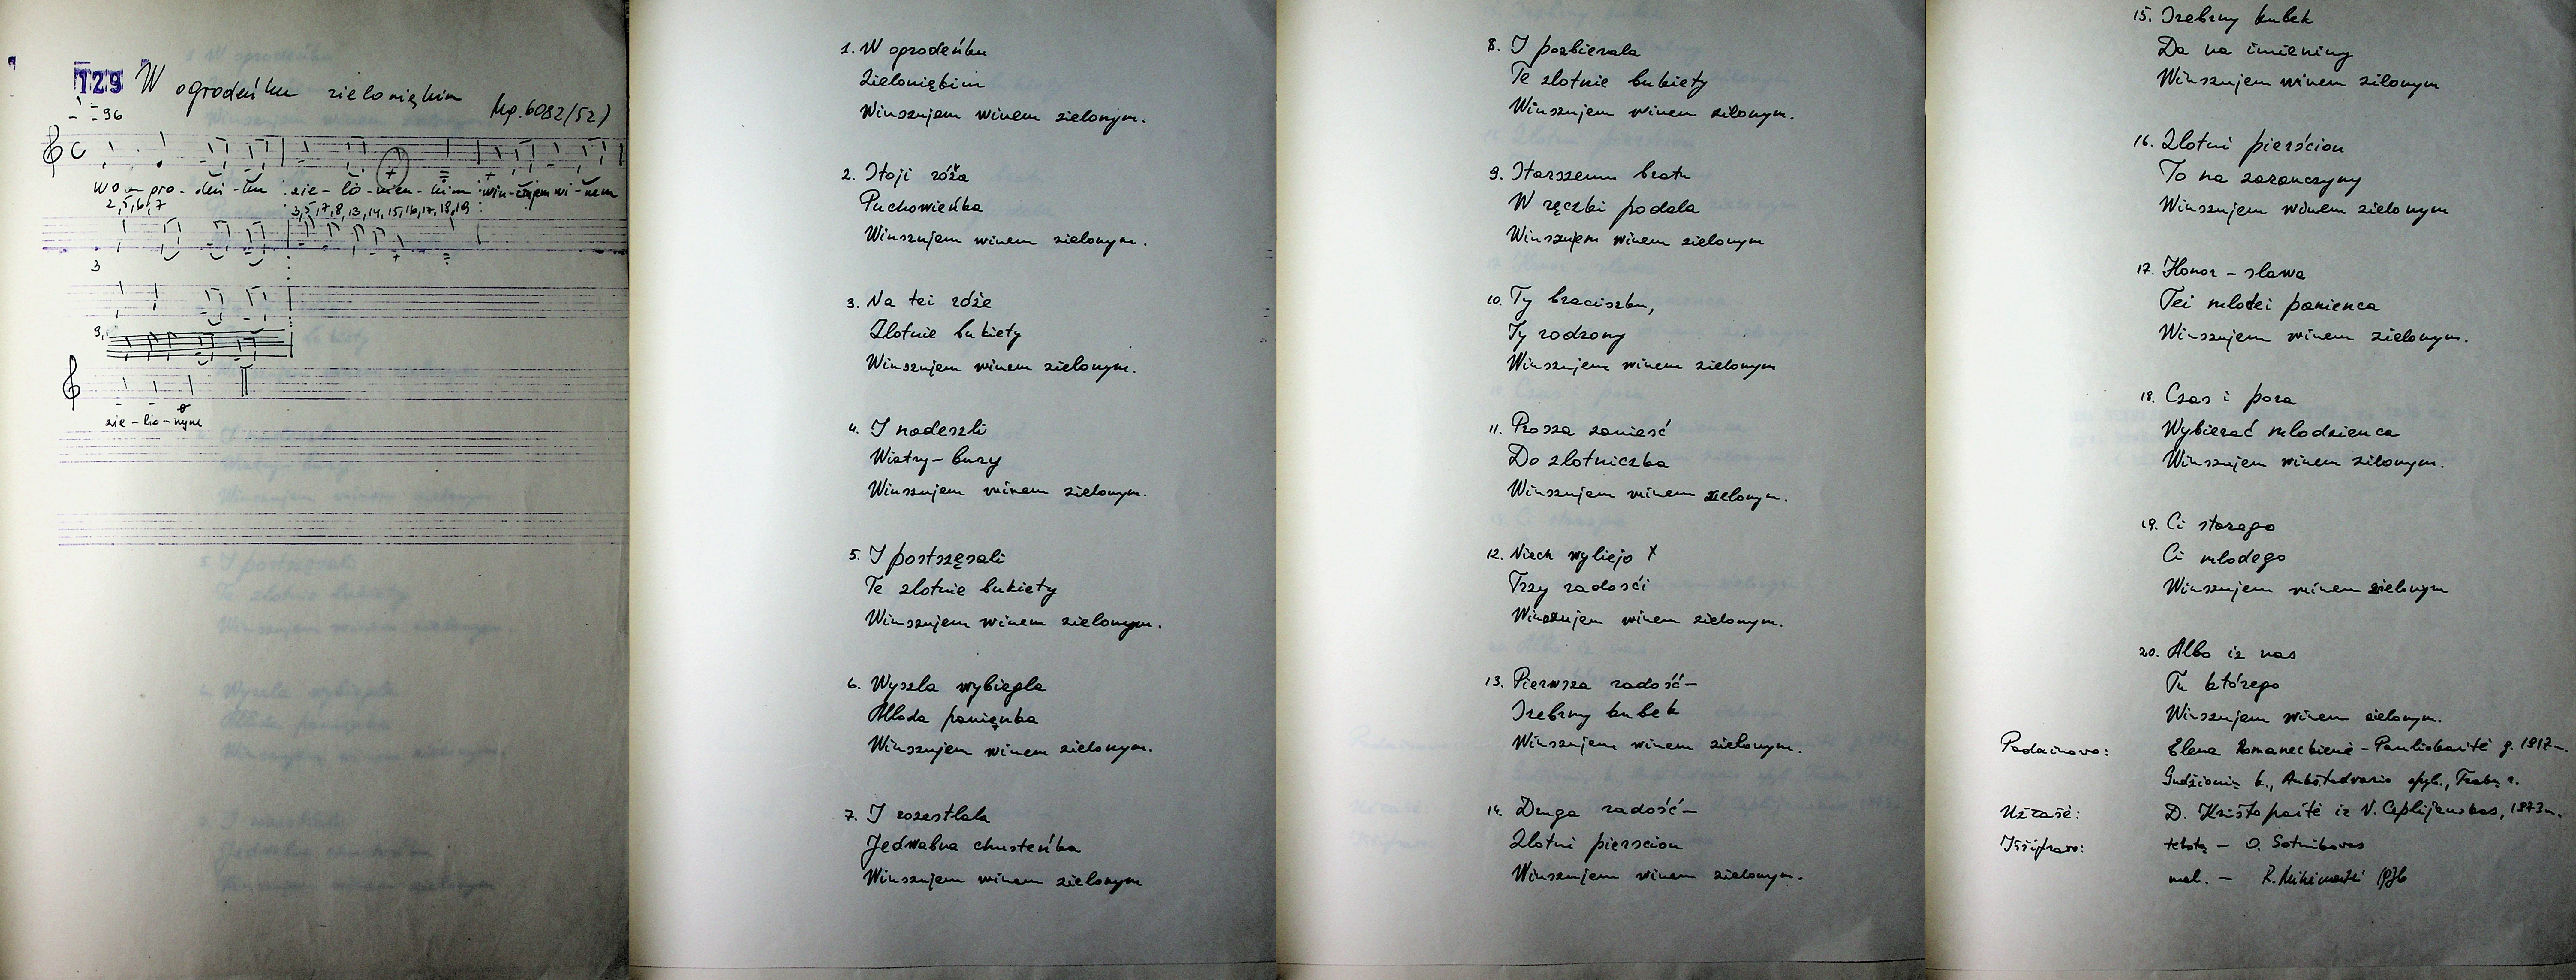 129 W ogrodeńku zieloniękim
Mg. 6082/52)
= 96
W o - gro - deń - ku zie - lo - nien - kim win - szujem wi - nem
2, 5, 6, 7 3, 5, 7, 8, 13, 14, 15, 16, 17, 18, 19
3
9,
zie - lio - nym
1. W ogrodeńku
Zieloniękim
Winszujem winem zielonym.
2. Stoji róža
Puchowieńka
Winszujem winem zielonym.
3. Na tei róże
Zlotnie bukiety
Winszujem winem zielonym.
4. I nadeszli
Wiatry-bury
Winszujem winem zielonym.
5. I postszęsali
Te zlotnie bukiety
Winszujem winem zielonym.
6. Wyszla wybiegla
Mloda panięnka
Winszujem winem zielonym.
7. I rozestlala
Jedwabna chusteńka
Winszujem winem zielonym
8. I pozbierala
Te zlotnie bukiety
Winszujem winem zilonym.
9. Starszemu bratu
W ręczki podala
Winszujem winem zielonym
10. Ty braciszku,
Ty rodzony
Winszujem winem zielonym
11. Prosza zanieść
Do zlotniczka
Winszujem winem zielonym.
12. Niech wyliejo x
Trzy radośći
Winszujem winem zielonym.
13. Pierwsza radość-
Srebrny kubek
Winszujem winem zielonym.
14. Druga radość-
Zlotni pierscion
Winszujem winem zielonym.
15. Srebrny kubek
Da na imieniny
Winszujem winem zilonym
16. Zlotni pierścion
To na zaranczyny
Winszujem winem zielonym
17. Honor - slawa
Tei mlotei panienca
Winszujem winem zielonym.
18. Czas i pora
Wybierać mlodzienca
Winszujem winem zilonym.
19. Ci starego
Ci mlodego
Winszujem winem zielonym
20. Albo iz nas
Tu którego
Winszujem winem zielonym.
Padainavo: Elena Romaneckienė - Pauliokaitė g. 1917 m.
Gudžionių k., Aukštadvario apyl., Trakų r.
Užrašė: D. Krištopaitė ir V. Ceplijauskas, 1973 m.
Iššifravo: tekstą - O. Sotnikovas
mel. - 1976